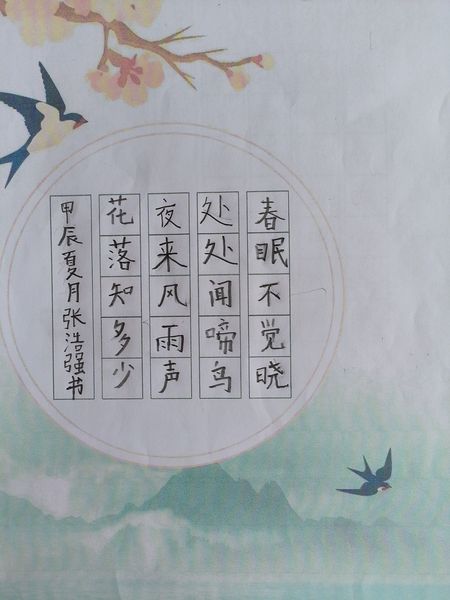 春眠不觉晓
处处闻啼鸟
夜来风雨声
花落知多少
甲辰夏月张浩强书